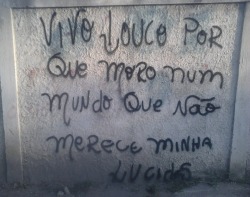 VIVO LOUCO POR
QUE MORO NUM
MUNDO QUE NÃO
MERECE MINHA